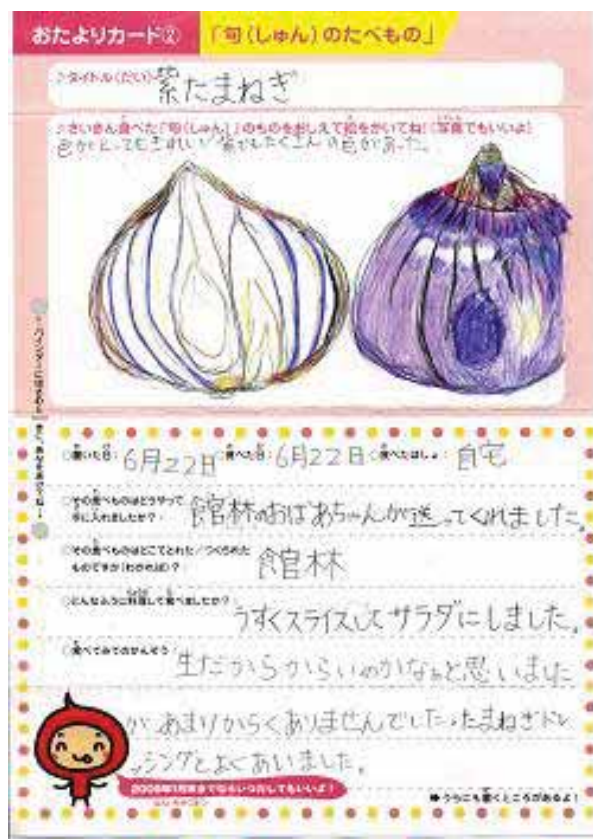 おたよりカード② 「旬(しゅん)のたべもの」
♪タイトル(だい) 紫たまねぎ
♪さいきん食べた「旬(しゅん)」のものをおしえて絵をかいてね!(写真でもいいよ)
色がとってもきれい!
たくさんの色があった。
○書いた日: 6月22日 ○食べた日: 6月22日 ○食べたばしょ: 自宅
○その食べものはどうやって
手に入れましたか?: 館林のおばあちゃんが送ってくれました。
○その食べものはどこでとれた/つくられた
ものですか(わかれば)? 館林
○どんなふうに料理して食べましたか?
うすくスライスしてサラダにしました。
○食べてみてのかんそう:
生だからからいのかなぁと思いました
が あまりからくありませんでした。たまねぎドレ
ッシングとよくあいました。
2008年1月末までならいつだしてもいいよ!
うらにも書くところがあるよ!